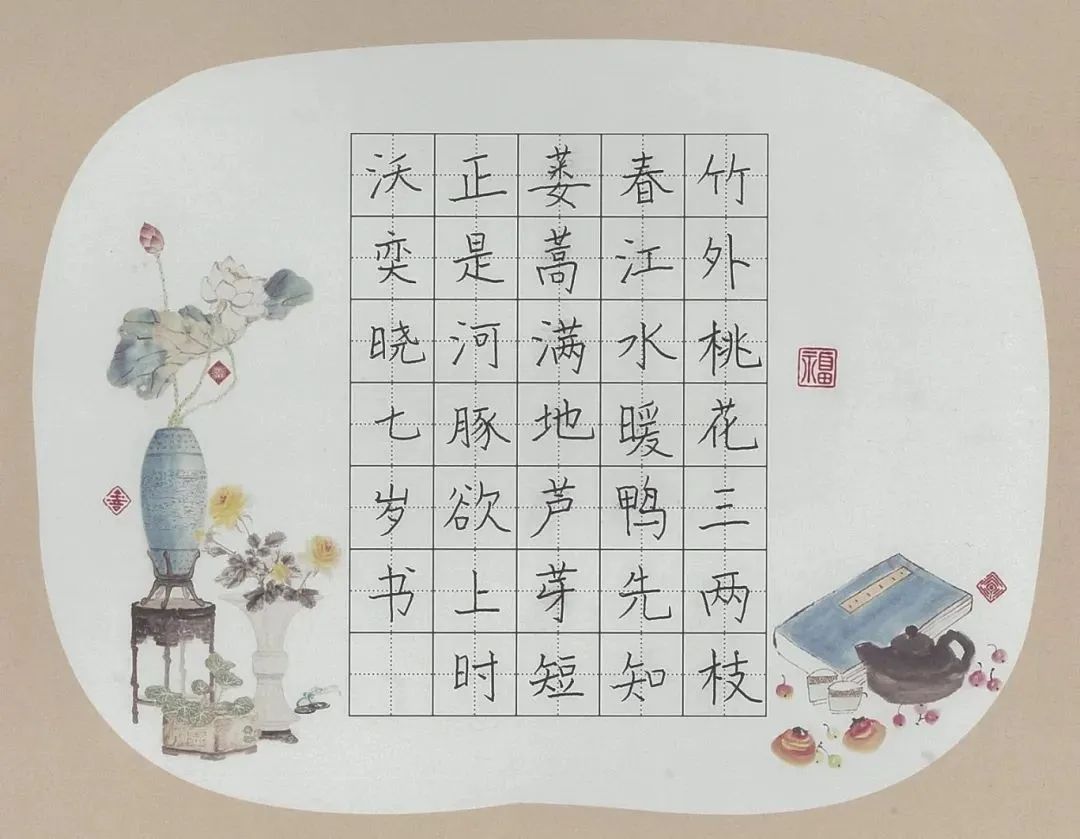 竹外桃花三两枝
春江水暖鸭先知
蒌蒿满地芦芽短
正是河豚欲上时
沃奕晓七岁书
福